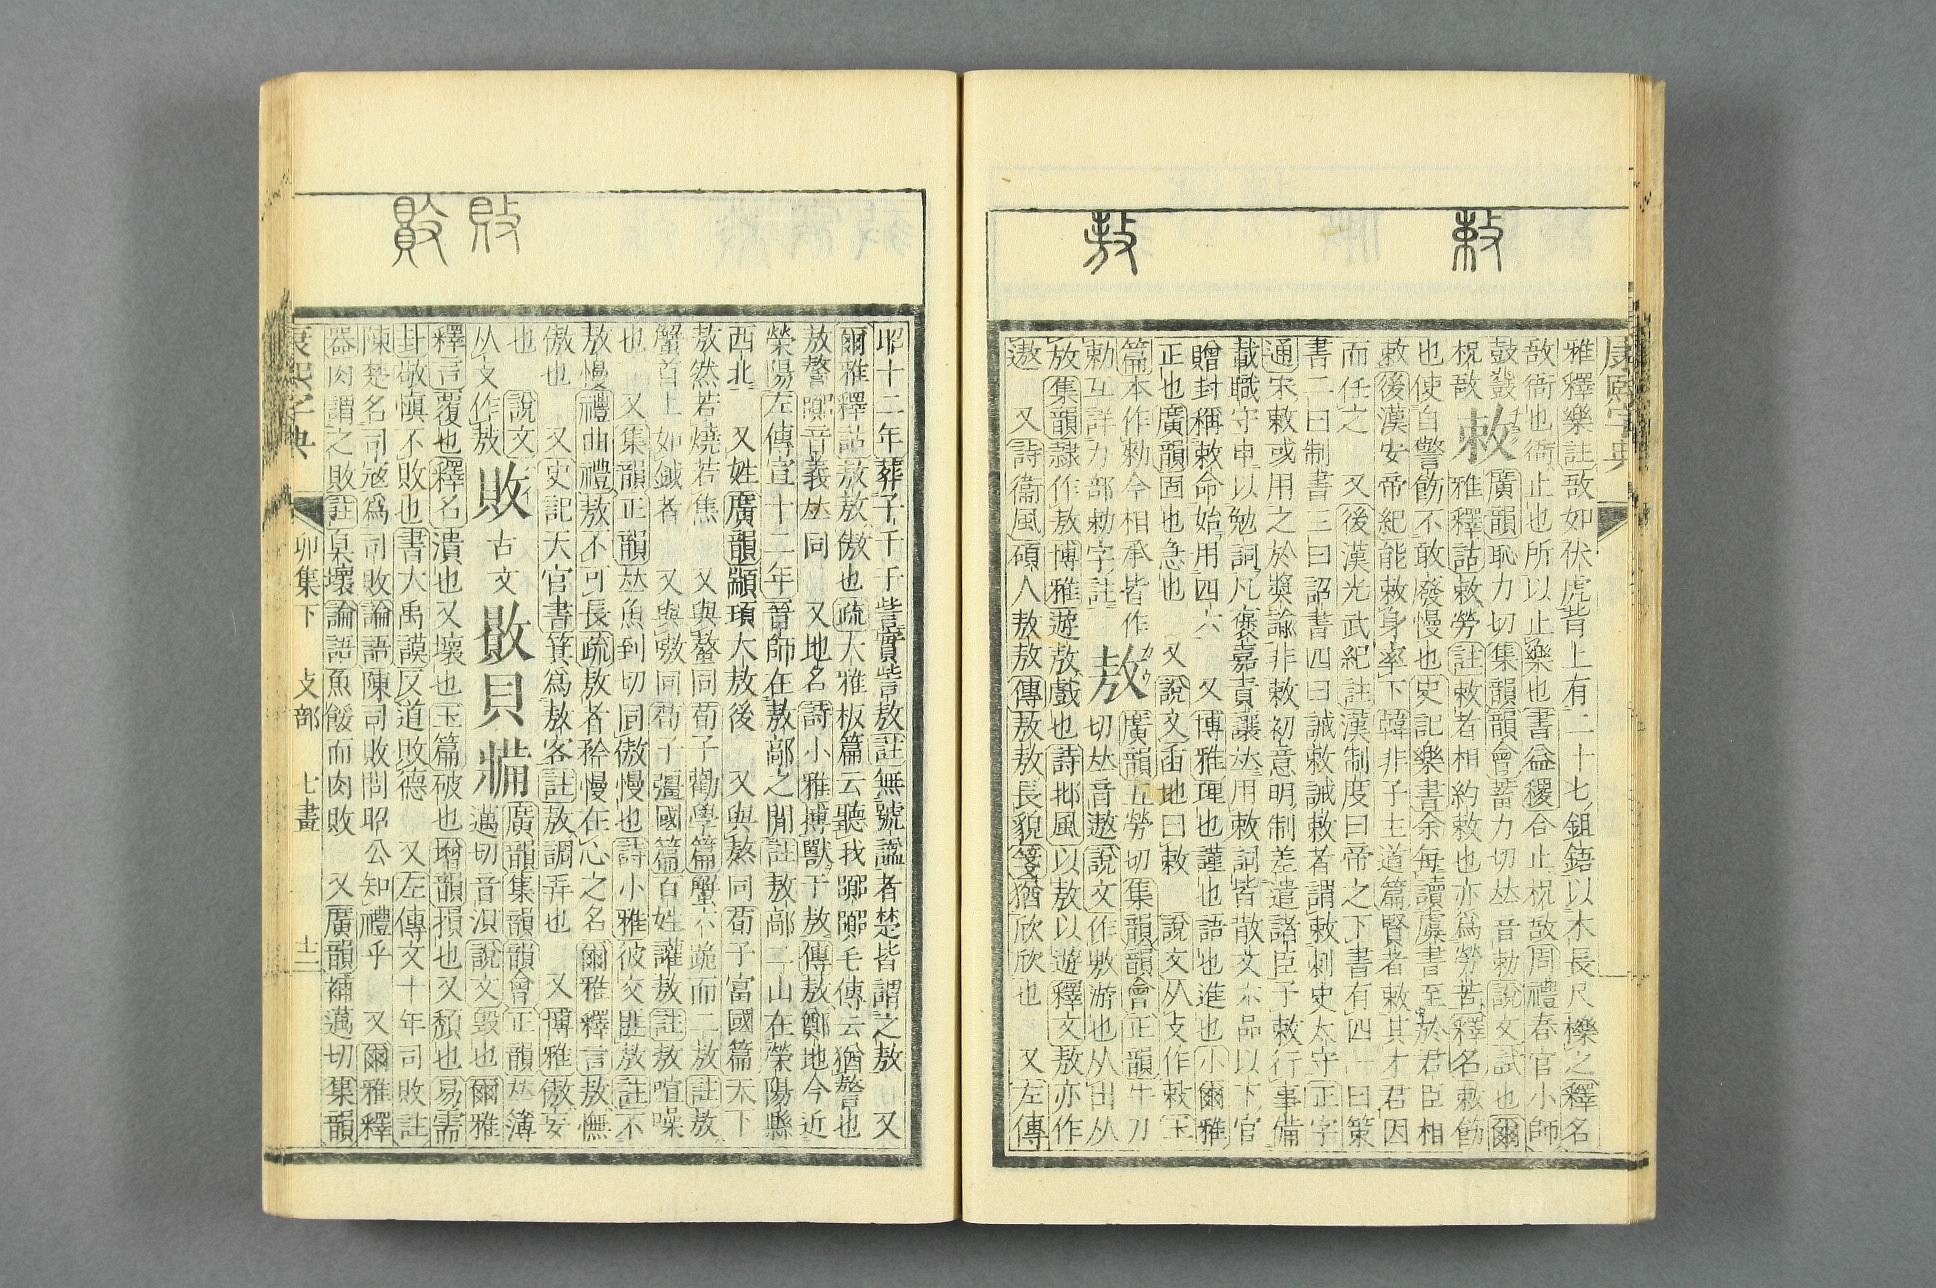 康熙字典
雅釋樂註敔如伏虎背上有二十七鉏鋙以木長尺櫟之釋名
敔衙也衙止也所以止樂也書益稷合止柷敔周禮春官小師
鼓鼗柷敔
敕 廣韻恥力切集韻韻會蓄力切𠀤音勑說文誡也爾
雅釋詁敕勞註敕者相約敕也亦爲勞苦釋名敕飭
也使自警飭不敢廢慢也史記樂書余每讀虞書至於君臣相
敕後漢安帝紀能敕身率下韓非子主道篇賢者敕其才君因
而任之 又後漢光武紀註漢制度曰帝之下書有四一曰策
書二曰制書三曰詔書四曰誡敕誡敕者謂敕刺史太守正字
通宋敕或用之於奬諭非敕初意明制差遣諸臣予敕行事備
載職守申以勉詞凡襃嘉責讓𠀤用敕詞皆散文六品以下官
贈封稱敕命始用四六 又博雅理也謹也語也進也小爾雅
正也廣韻固也急也 又說文臿地曰敕 說文从攴作敕玉
篇本作勅今相承皆作
勑互詳力部勑字註
敖 廣韻五勞切集韻韻會正韻牛刀
切𠀤音遨說文作敖游也从出从
放集韻隷作敖博雅遊敖戲也詩邶風以敖以遊釋文敖亦作
遨 又詩衞風碩人敖敖傳敖敖長貌箋猶欣欣也 又左傳
昭十二年葬子干于訾實訾敖註無號諡者楚皆謂之敖 又
爾雅釋訓敖敖傲也疏大雅板篇云聽我嚻嚻毛傳云猶謷也
敖謷嚻音義𠀤同 又地名詩小雅搏獸于敖傳敖鄭地今近
榮陽左傳宣十二年晉師在敖鄗之閒註敖鄗二山在榮陽縣
西北 又姓廣韻顓頊大敖後 又與熬同荀子富國篇天下
敖然若燒若焦 又與螯同荀子勸學篇蟹六跪而二敖註敖
蟹首上如鉞者 又與嗷同荀子彊國篇百姓讙敖註敖喧噪
也 又集韻正韻𠀤魚到切同傲慢也詩小雅彼交匪敖註不
敖慢禮曲禮敖不可長疏敖者矜慢在心之名爾雅釋言敖憮
傲也 又史記天官書箕爲敖客註敖調弄也 又博雅傲妄
也 說文
从攴作敖
敗 古文 𣀙𧴯𤖕 廣韻集韻韻會正韻𠀤簿
邁切音浿說文毀也爾雅
釋言覆也釋名潰也又壞也玉篇破也增韻損也又頽也易需
卦敬愼不敗也書大禹謨反道敗德 又左傳文十年司敗註
陳楚名司寇爲司敗論語陳司敗問昭公知禮乎 又爾雅釋
器肉謂之敗註臭壞論語魚餒而肉敗 又廣韻補邁切集韻
康熙字典 卯集下 攴部 七畫 十三